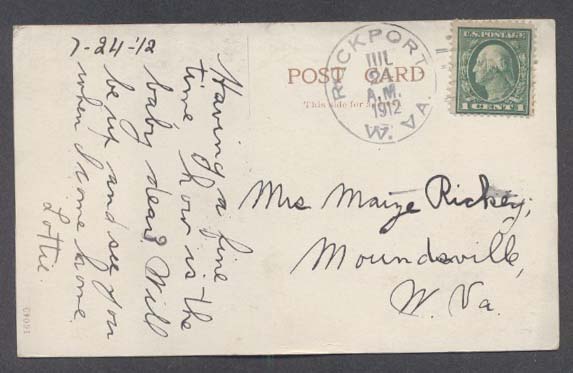 7-24-'12
Having a fine
time how is the
baby dear? Will
be up and see you
when I come home.
Lottie.
POST CARD
This side for
ROCKPORT
JUL
24
A.M.
1912
W. VA.
U.S. POSTAGE
1 CENT 1
Mrs Maize Rickey,
Moundsville,
W. Va.